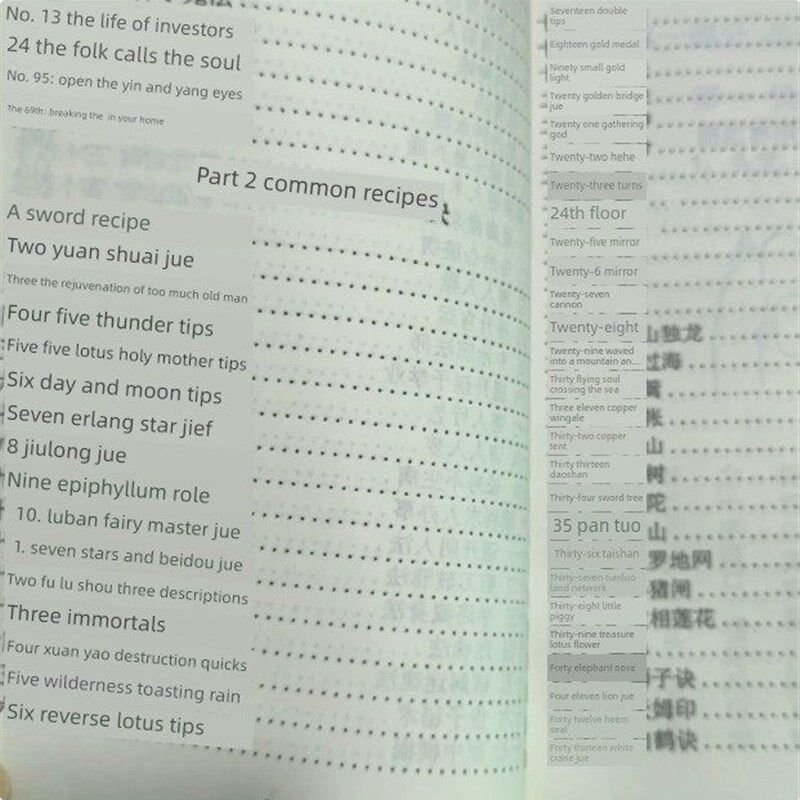 No. 13 the life of investors
24 the folk calls the soul
No. 95: open the yin and yang eyes
The 69th: breaking the in your home
Part 2 common recipes
A sword recipe
Two yuan shuai jue
Three the rejuvenation of too much old man
Four five thunder tips
Five five lotus holy mother tips
Six day and moon tips
Seven erlang star jief
8 jiulong jue
Nine epiphyllum role
10. luban fairy master jue
1. seven stars and beidou jue
Two fu lu shou three descriptions
Three immortals
Four xuan yao destruction quicks
Five wilderness toasting rain
Six reverse lotus tips
Seventeen double
tips
Eighteen gold medal
Ninety small gold
light
Twenty golden bridge
jue
Twenty one gathering
god
Twenty-two hehe
Twenty-three turns
24th floor
Twenty-five mirror
Twenty-6 mirror
Twenty-seven
cannon
Twenty-eight
山独龙
Twenty-nine waved
into a mountain an...
过海
Thirty flying soul
crossing the sea
Three eleven copper
wingale
帐
Thirty-two copper
tent
山
Thirty thirteen
daoshan
树
Thirty-four sword tree
陀
35 pan tuo
山
Thirty-six taishan
罗地网
Thirty-seven tianluo
land network
猪闸
Thirty-eight little
piggy
相莲花
Thirty-nine treasure
lotus flower
Forty elephant nose
子诀
Four eleven lion jue
姆印
Forty twelve heem
seal
鹤诀
Forty thirteen white
crane jue